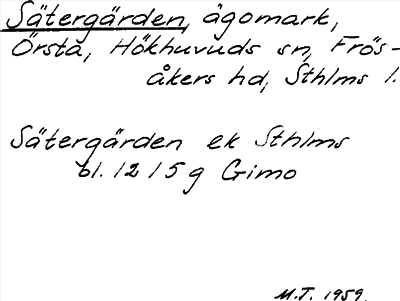 Sätergärden, ägomark,
Örsta, Hökhuvuds sn, Frös-
åkers hd, Sthlms l.
Sätergärden ek Sthlms
bl. 12 I 5 g Gimo
M.T. 1959.